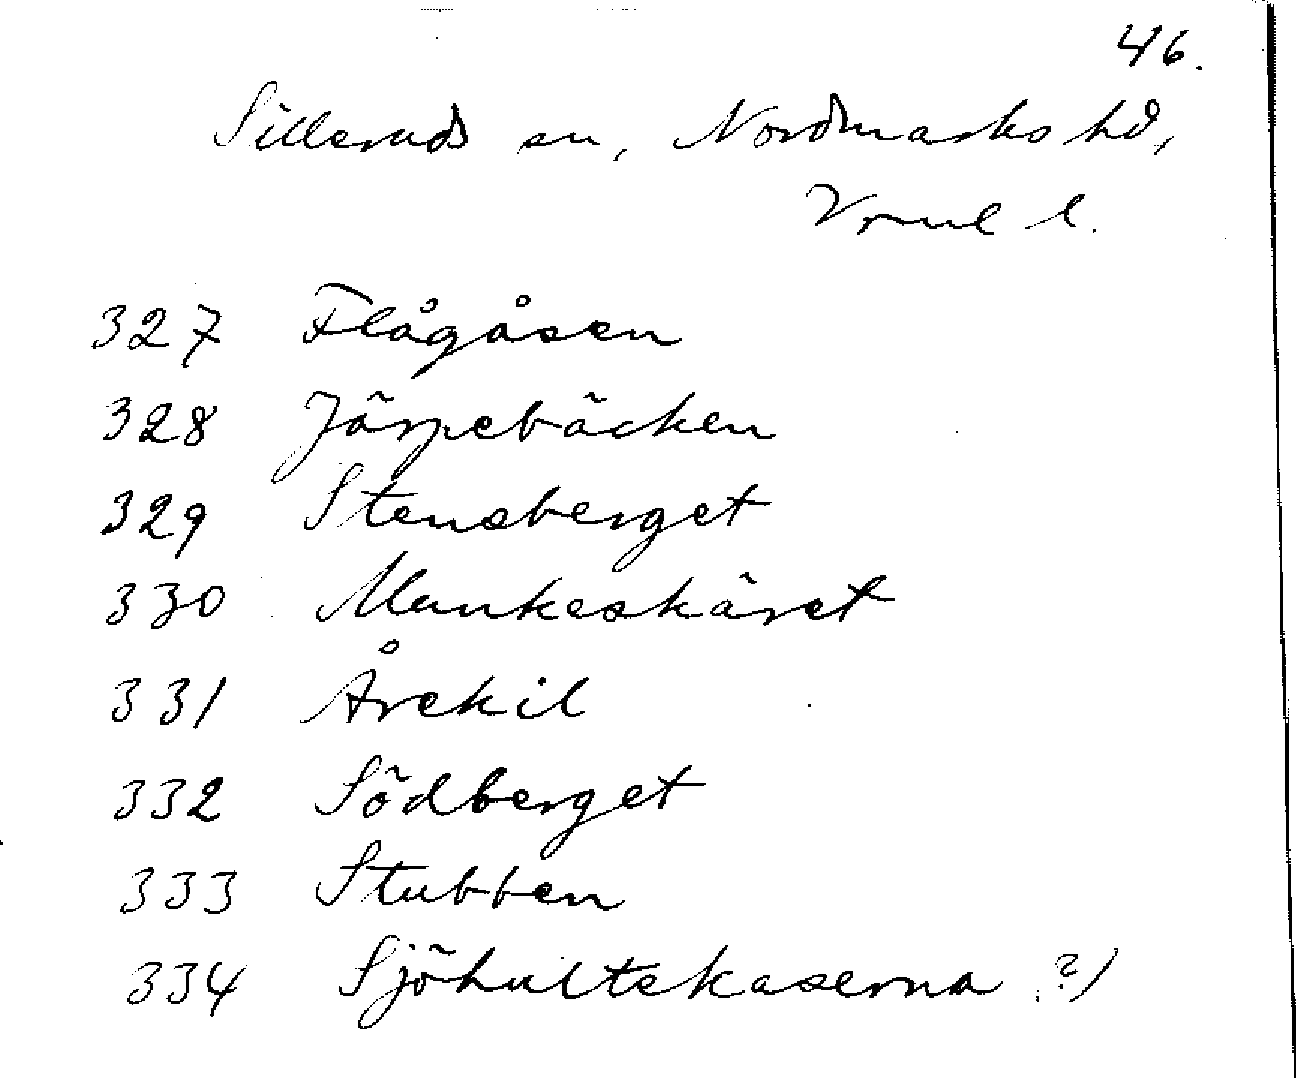 46.
Silleruds sn, Nordmarks hd,
Vrml l.
327 Flågåsen
328 Järpebäcken
329 Stensberget
330 Munkeskäret
331 Årekil
332 Södberget
333 Stubben
334 Sjöhultskaserna ?)